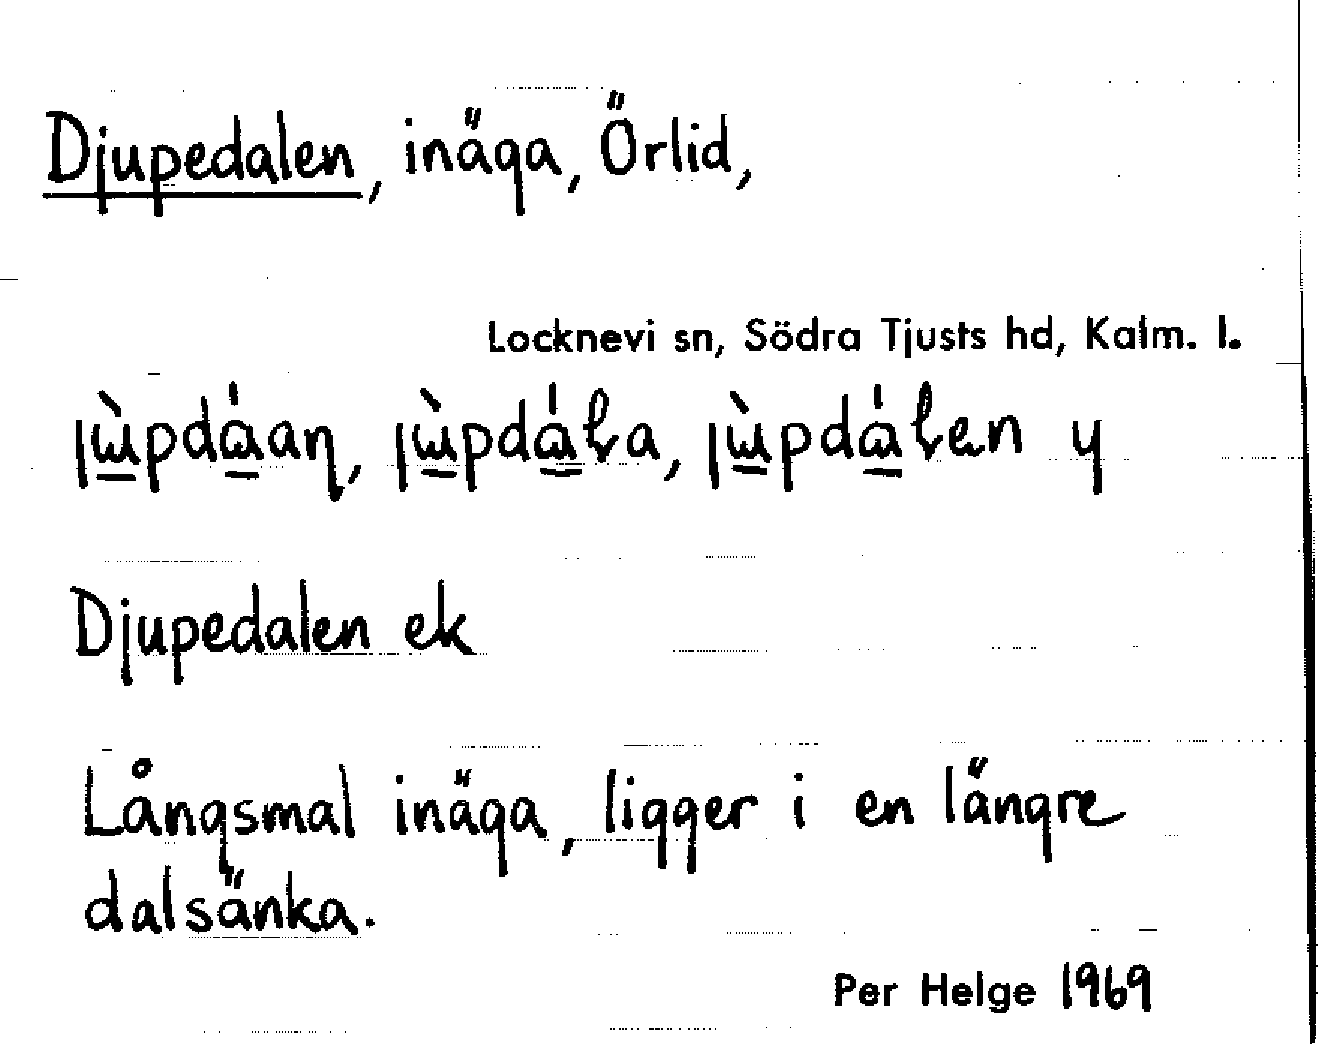 Djupedalen, inäga, Örlid,
Locknevi sn, Södra Tjusts hd, Kalm. l.
y
Djupedalen ek
Långsmal inäga, ligger i en längre
dalsänka.
Per Helge 1969